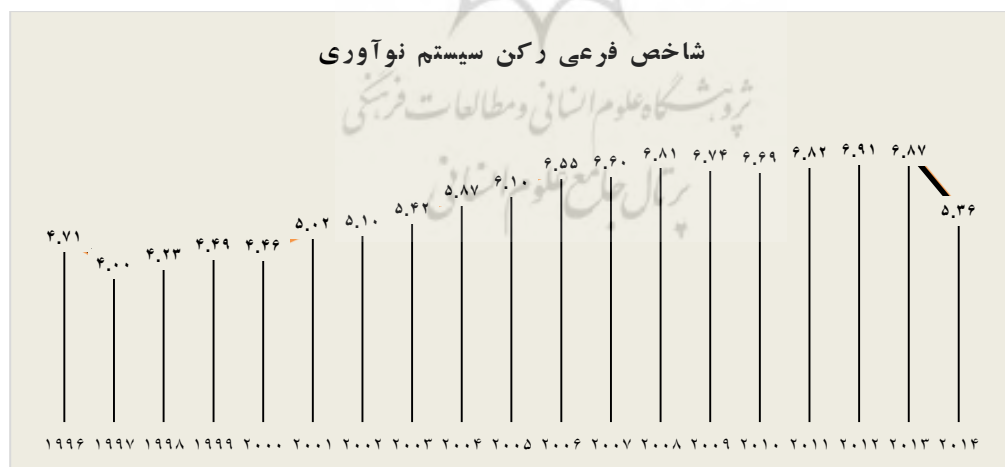 شاخص فرعی رکن سیستم نوآوری
پژوهشگاه علوم انسانی و مطالعات فرهنگی
پرتال جامع علوم انسانی
۴.۷۱ ۴.۰۰ ۴.۲۳ ۴.۴۹ ۴.۴۶ ۵.۰۲ ۵.۱۰ ۵.۴۲ ۵.۸۷ ۶.۱۰ ۶.۵۵ ۶.۶۰ ۶.۸۱ ۶.۷۴ ۶.۶۹ ۶.۸۲ ۶.۹۱ ۶.۸۷ ۵.۳۶
۱۹۹۶ ۱۹۹۷ ۱۹۹۸ ۱۹۹۹ ۲۰۰۰ ۲۰۰۱ ۲۰۰۲ ۲۰۰۳ ۲۰۰۴ ۲۰۰۵ ۲۰۰۶ ۲۰۰۷ ۲۰۰۸ ۲۰۰۹ ۲۰۱۰ ۲۰۱۱ ۲۰۱۲ ۲۰۱۳ ۲۰۱۴